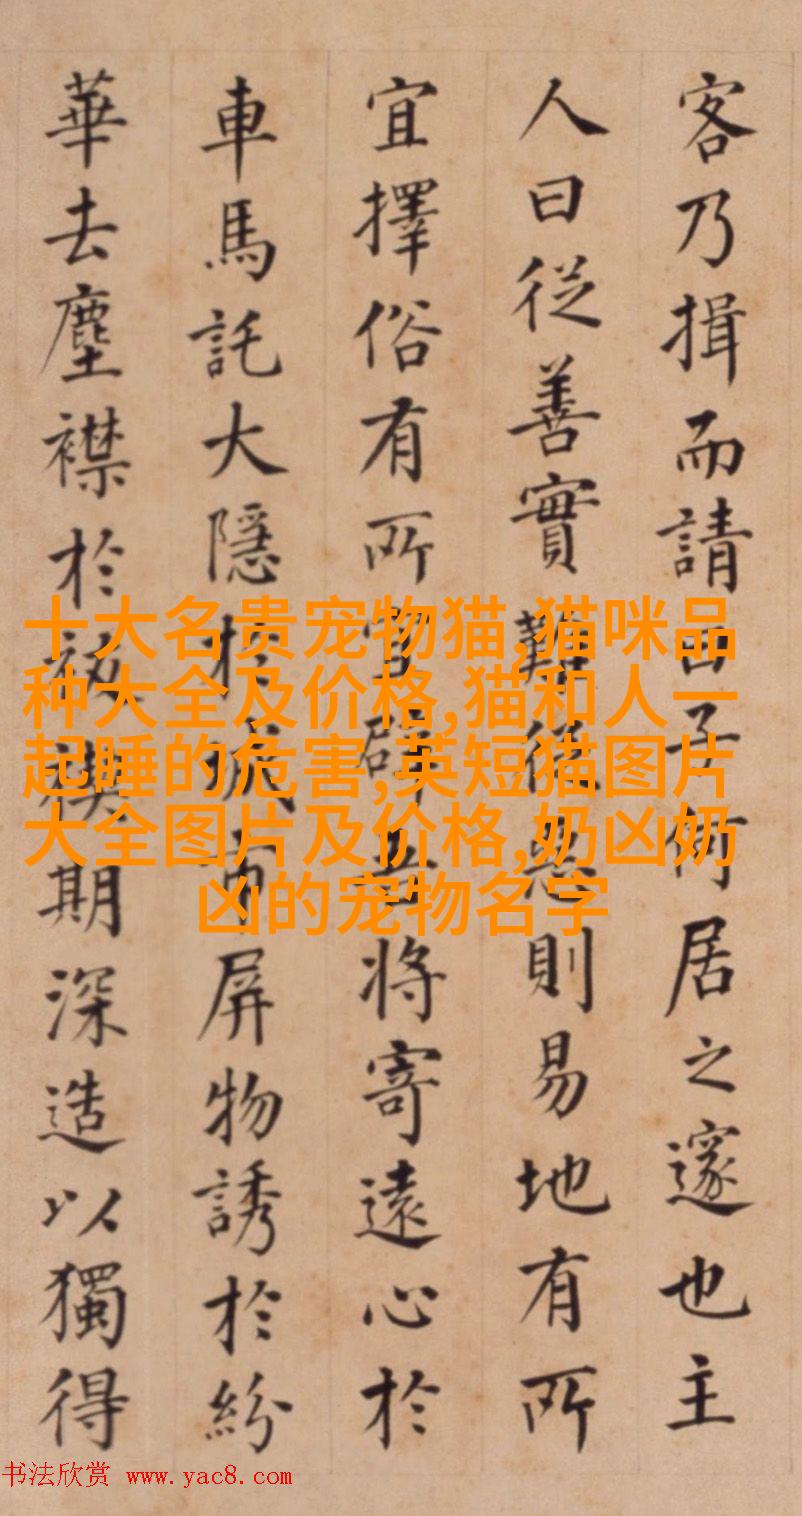 客乃揖而請曰子何居之邃也主
人曰從善實難從惡則易地有所
宜擇俗有所辟吾將寄遠心於
車馬託大隱於城市屏物誘於紛
華去塵襟於祓禊期深造以獨得
十大名贵宠物猫,猫咪品
种大全及价格,猫和人一
起睡的危害,英短猫图片
大全图片及价格,奶凶奶
凶的宠物名字
书法欣赏 www.yac8.com